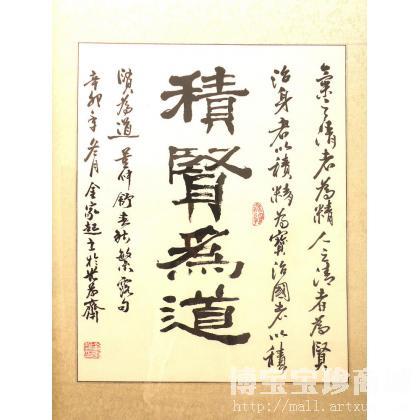 氣之清者為精人之清者為賢
治身者以積精為寶治國者以積
積賢為道
賢為道 董仲舒春秋繁露句
辛卯年冬月金家起書於齋
博宝宝珍商
http://mall.artxu